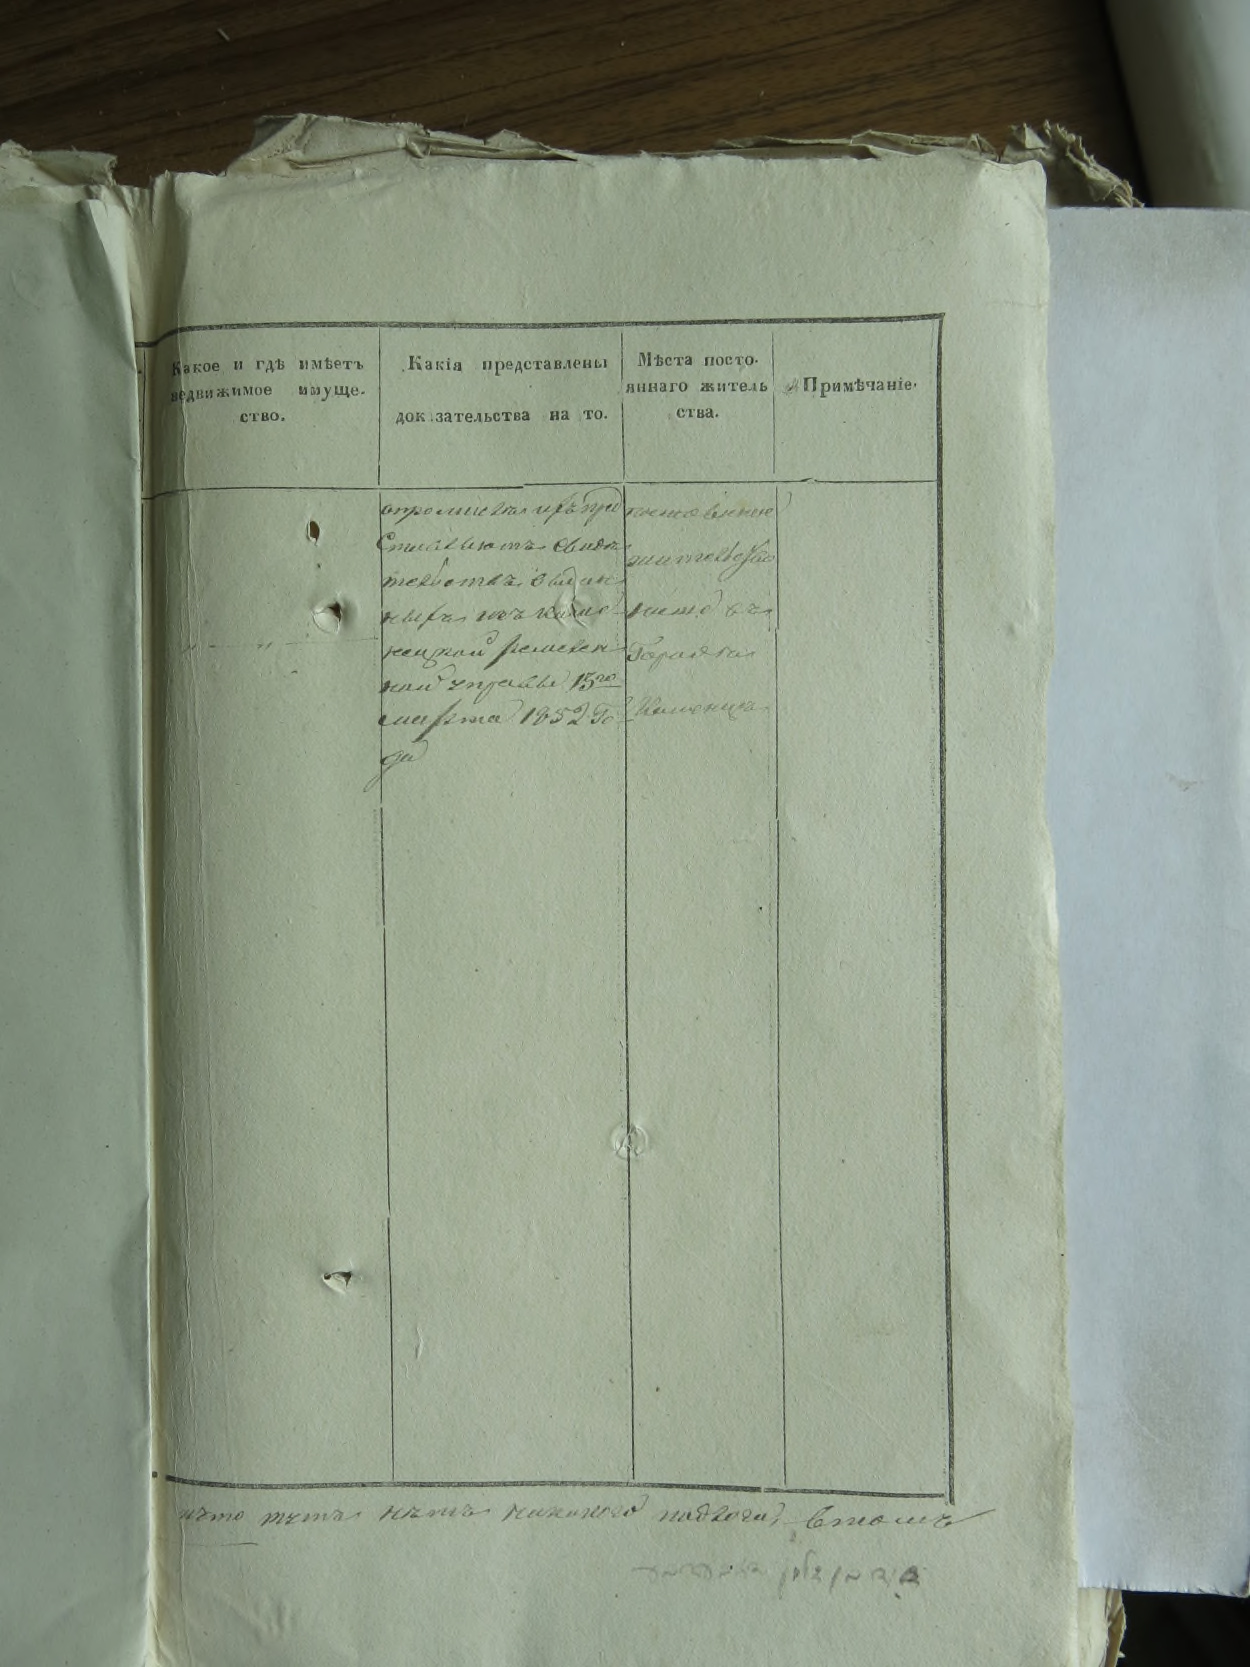 Какое и гдѣ имѣетъ
недвижимое имуще-
ство.
Какія представлены
доказательства на то.
Мѣста посто-
яннаго житель
ства.
Примѣчаніе.
о промыслѣ ихъ пред
ставляютъ свидѣ
тельства выдан
ныхъ изъ Камѣ
нецкой ремеслен
ной управы 13го
марта 1852 Го
да
постоянное
жительство
въ
Городѣ
Каменцѣ
что тутъ нѣтъ никакого подлога, втомъ